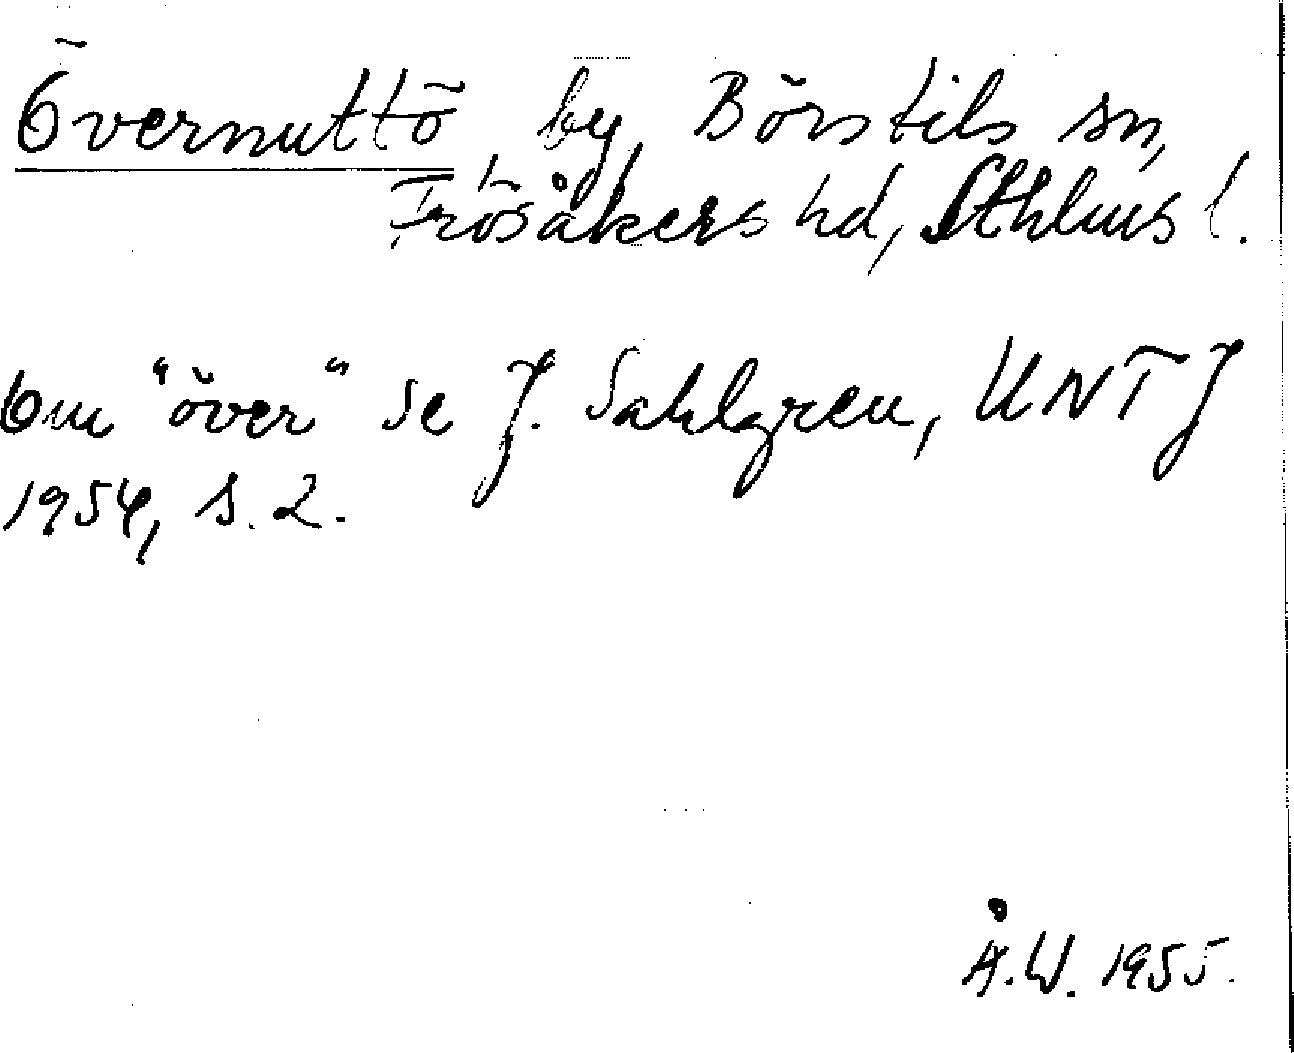 Övernuttö, by, Börstils sn,
Frösåkers hd, Sthlms l.
Om "över" se J. Sahlgren, UNTJ
1954, s. 2.
Å.W. 1955.